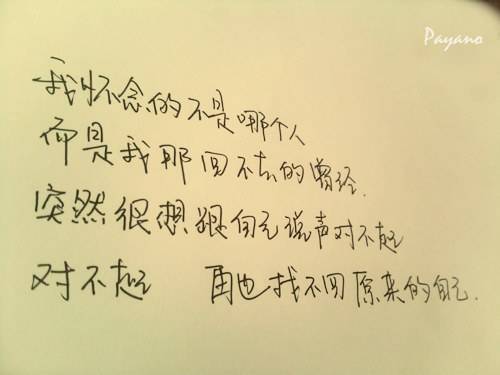 Payano
我怀念的不是哪个人
而是我那回不去的曾经.
突然很想狠自己说声对不起
对不起 再也找不回原来的自己.